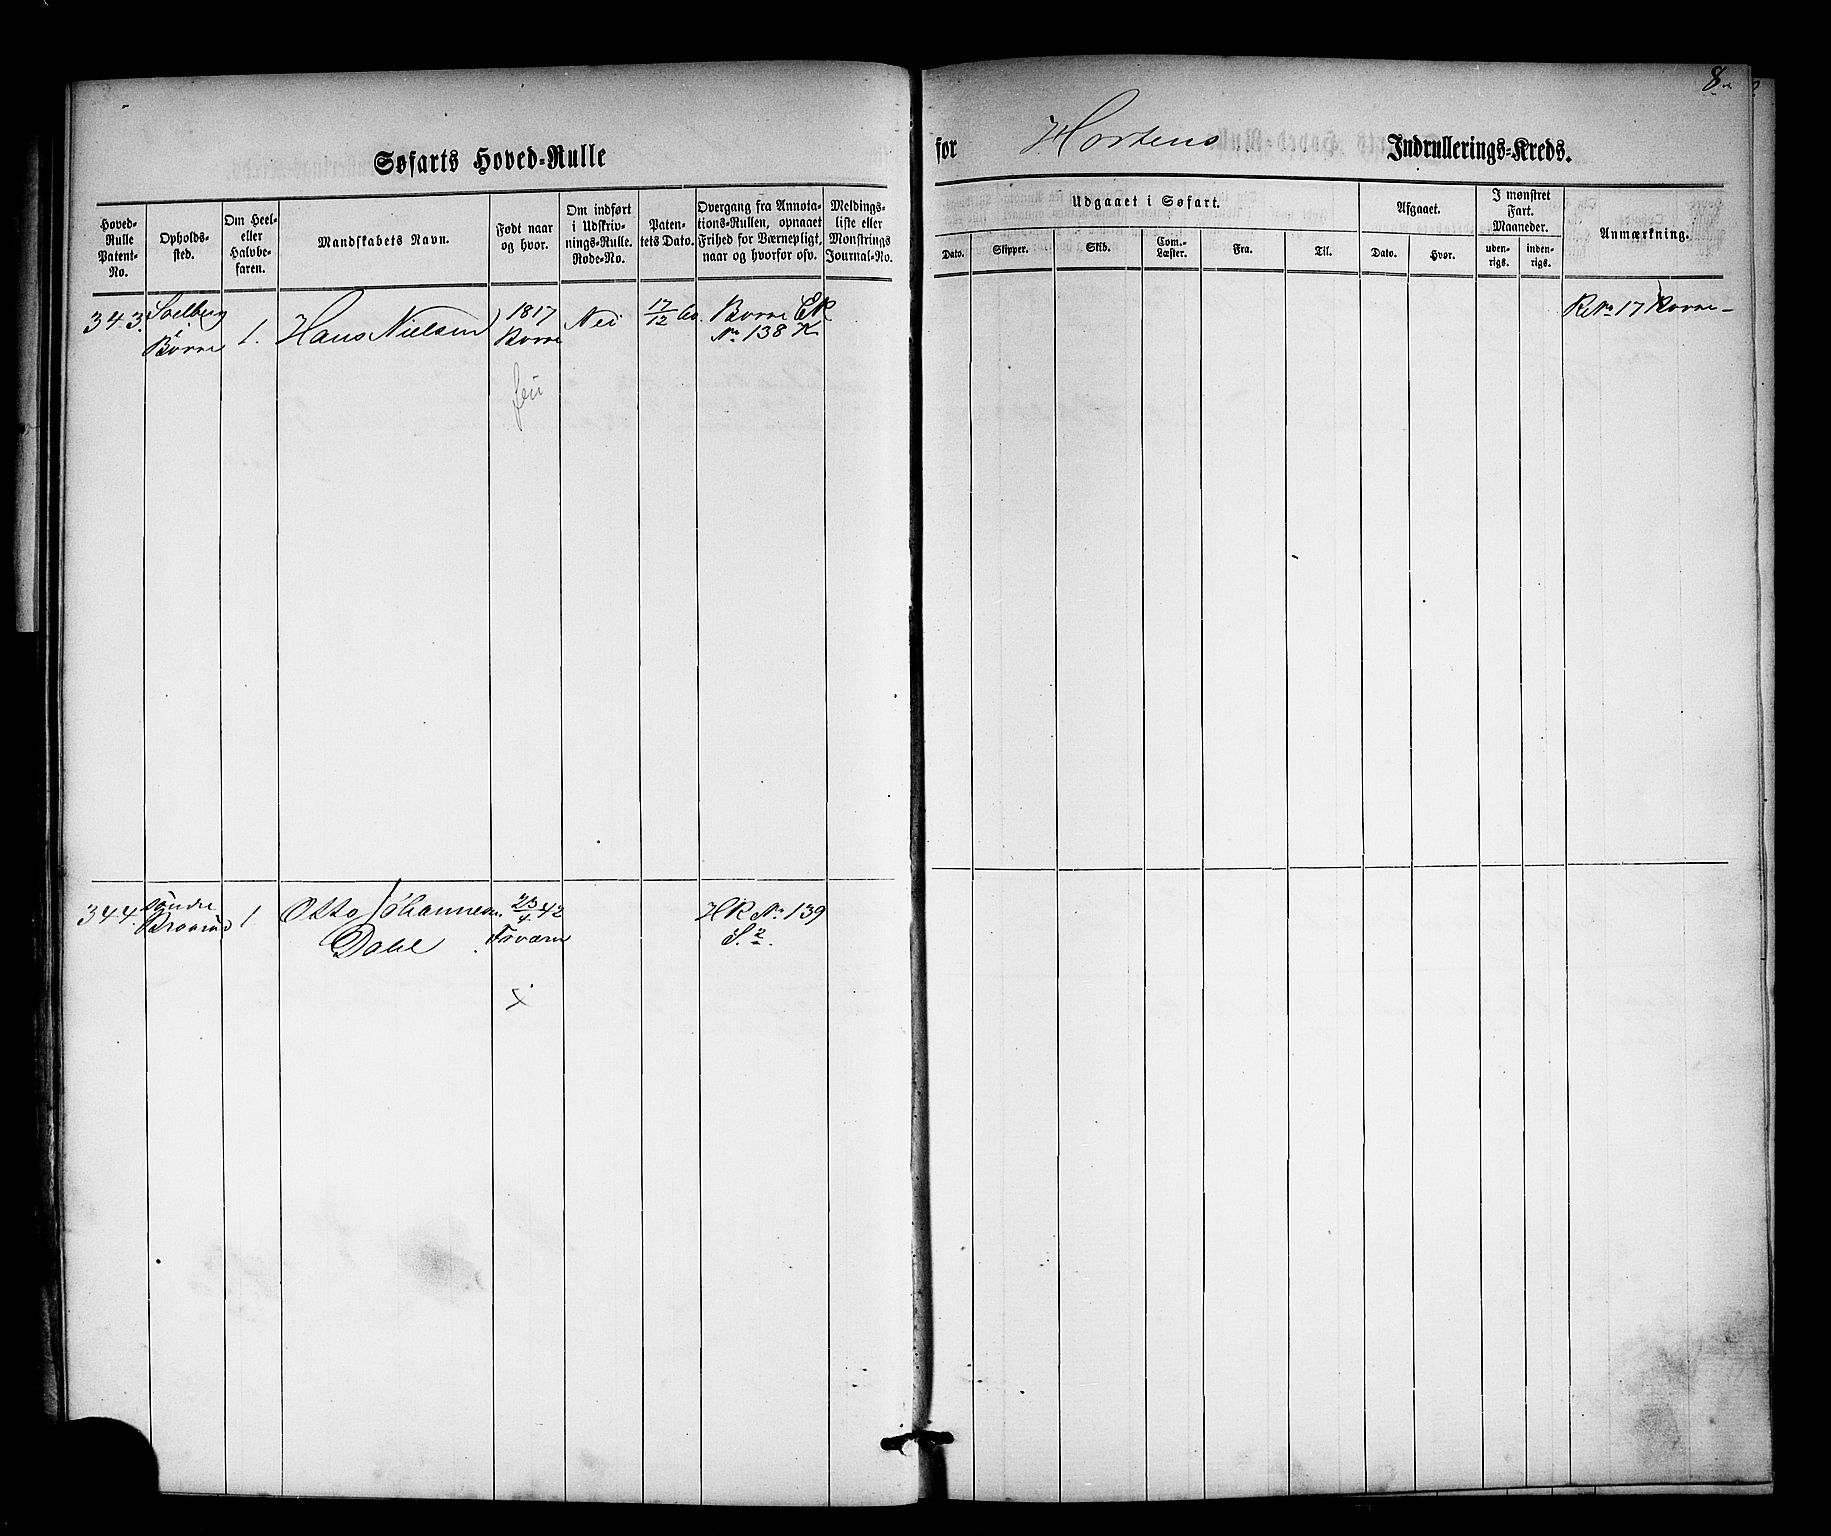 8
Søfarts Hoved-Rulle for Hortens Indrullerings-Kreds.
Hoved-Rulle Patent-No.
Opholds-sted.
Om Heel- eller Halvbe-faren.
Mandskabets Navn.
Født naar og hvor.
Om indført i Udskriv-nings-Rulle. Rode-No.
Paten-tets Dato.
Overgang fra Annota-tions-Rullen, opnaaet Frihed for Værnepligt, naar og hvorfor osv.
Meldings-liste eller Mønstrings Journal-No.
Udgaaet i Søfart.
Dato.
Skipper.
Skib.
Com.-Læster.
Fra.
Til.
Afgaaet.
Dato.
Hvor.
I mønstret Fart. Maaneder.
uden-rigs.
inden-rigs.
Anmærkning.
343.
Solberg
i
Borre
1.
Hans Nielsen
1817
Borre
Nei
17/12 60.
Borre ER
No 138 K
R No 17 Borre
344.
Søndre
1
Otto Johannesen
Dahl
23/4 42
HR No 139
S. 2
x